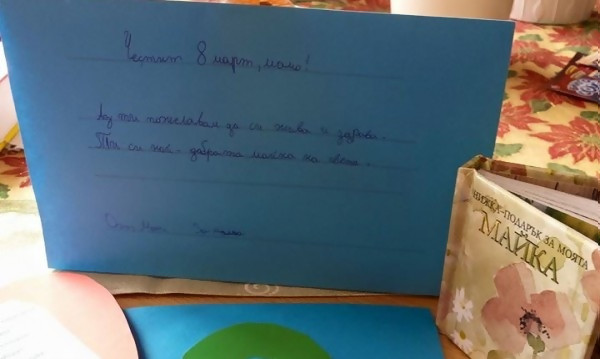 Честит 8 март, мамо!
Аз ти пожелавам да си жива и здрава.
Ти си най-добрата майка на света.
За мама
КНИЖКА-ПОДАРЪК ЗА МОЯТА
МАЙКА